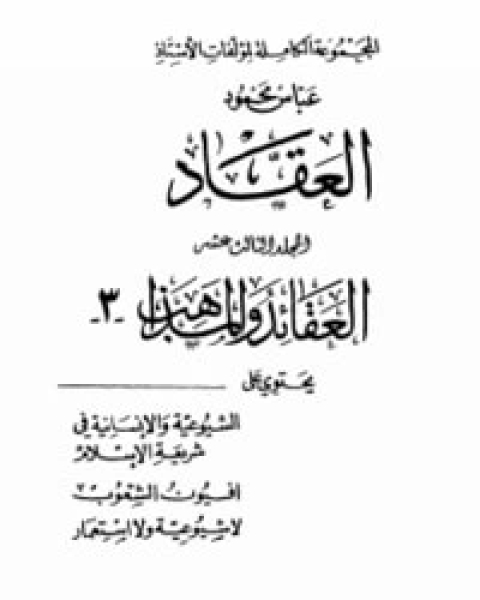 المجموعة الكاملة لمؤلفات الأستاذ
عباس محمود
العقاد
المجلد الثالث عشر
العقائد والمذاهب -٣-
يحتوي على
الشيوعية والإنسانية في
شريعة الإسلام
افيون الشعوب
لا شيوعية ولا استعمار